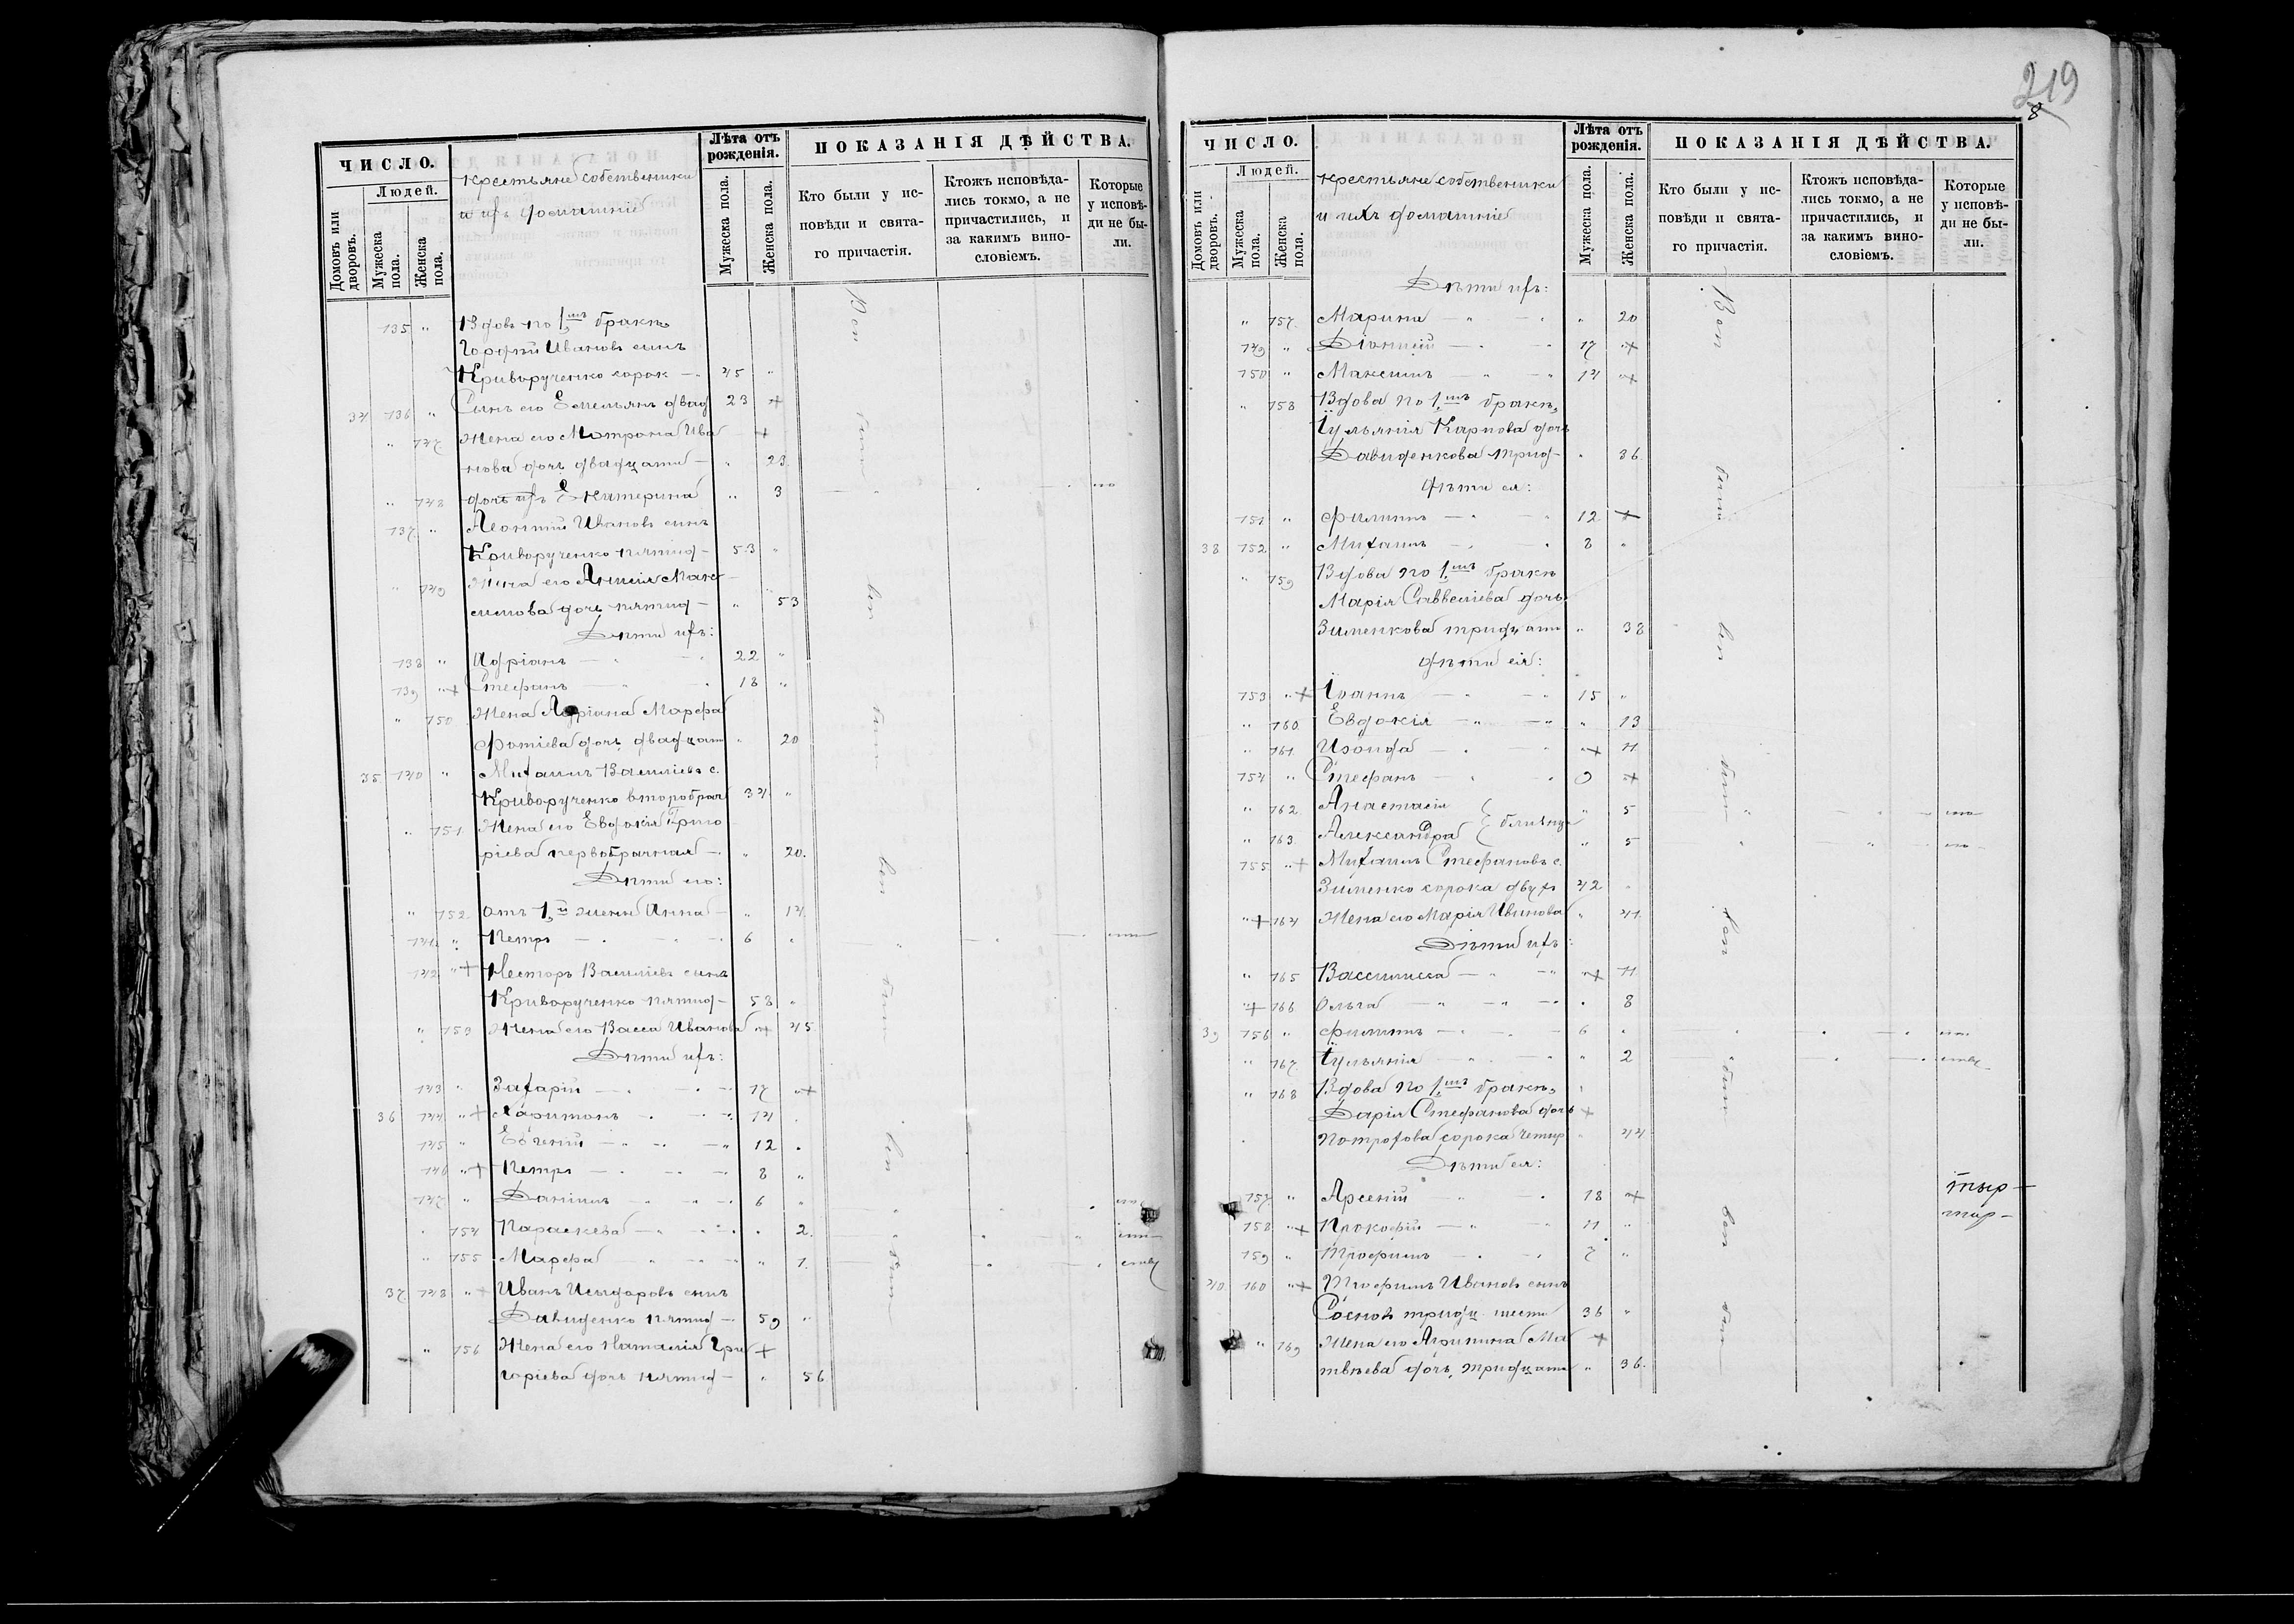 ЧИСЛО.
Людей.
Домовъ или дворовъ.
Мужеска пола.
Женска пола.
крестьяне собственики
и ихъ домашніе
Лѣта отъ рожденія.
Мужеска пола.
Женска пола.
ПОКАЗАНІЯ ДѢЙСТВА.
Кто были у исповѣди и святаго причастія.
Ктожъ исповѣдались токмо, а не причастились, и за какимъ винословіемъ.
Которые у исповѣди не были.
135 " Вдовъ по 1мъ бракѣ
Гордѣй Ивановъ сынъ
Криворученко сорок — 45 "
34 136 " Сынъ его Емельянъ двад 23 +
" 147 Жена его Матрона Ива +
нова дочь двадцати — " 23
" 148 дочь ихъ Екатерина " 3
137 " Леонтій Ивановъ сынъ
Криворученко пятид — 53 "
" 149 Жена его Анисія Макс
симова дочь пятид — " 53
Дѣти ихъ:
138 " Адріанъ — " — 22 "
139 "+ Стефанъ — " — 18 "
" 150 Жена Адріана Марѳа
Фотіева дочь двадцат " 20
35 140 " Михаилъ Василіевъ с.
Криворученко второбрач 34 "
" 151 Жена его Евдокія Григо
ріева первобрачная — " 20.
Дѣти его:
" 152 отъ 1й жены Анна — " 14.
141 " Петръ — " — 6 "
142 "+ Несторъ Василіевъ сынъ
Криворученко пятид — 58 "
" 153 Жена его Васса Иванова "+ 45
Дѣти ихъ:
143 " Захарій — " — 17 "+
36 144 "+ Харитонъ — " — 14 "
145 " Евгеній — " — 12 "
146 "+ Петръ — " — 8 "
147 " Даніилъ — " — 6 "
" 154 Параскева — " — " 2.
" 155 Марѳа — " — " 1.
37 148 "+ Иванъ Исидоровъ сынъ
Давиденко пятид — 59 "
" 156 Жена его Наталія Гри +
горіева дочь пятид — " 56
Всѣ
были
всѣ
были
всѣ
были
всѣ
были
219
8
ЧИСЛО.
Людей.
Домовъ или дворовъ.
Мужеска пола.
Женска пола.
крестьяне собственики
и ихъ домашніе
Лѣта отъ рожденія.
Мужеска пола.
Женска пола.
ПОКАЗАНІЯ ДѢЙСТВА.
Кто были у исповѣди и святаго причастія.
Ктожъ исповѣдались токмо, а не причастились, и за какимъ винословіемъ.
Которые у исповѣди не были.
Дѣти ихъ:
" 157. Марина — " — " 20
149 " Діонисій — " — 17 "+
150 " Максимъ — " — 14 "+
" 158 Вдова по 1мъ бракѣ,
Іульянія Карпова дочь
Давиденкова трид — " 36
дѣти ея:
151 " Филиппъ — " — 12 +
38 152 " Михаилъ — " — 8 "
" 159 Вдова по 1мъ бракѣ
Марія Саввеліева дочь
Зименкова тридцати " 38
дѣти ея:
153 "+ Іоаннъ — " — 15 "
" 160 Евдокія — " — " 13
" 161 Изоида — " — "+ 11
154 " Стефанъ — " — 9 +
" 162 Анастасія } близнц " 5
" 163 Александра " 5
155 "+ Михаилъ Стефановъ с.
Зименко сорока двух 42 "
"+ 164 Жена его Марія Иванова " 41
Дѣти ихъ:
" 165 Вассилиса — " — "+ 11
"+ 166 Ольга — " — " 8
39 156 " Филиппъ — " — 6 "
" 167 Іульянія — " — " 2
" 168 Вдова по 1мъ бракѣ,
Дарія Стефанова дочь +
Потрохова сорока четыр " 44
Дѣти ея:
157 " Арсеній — " — 18 "+
158 "+ Прокофій — " — 11 "
159 " Трофимъ — " — 7 "
40 160 "+ Трофимъ Ивановъ сынъ
тридц. шести 36 "
" 169 Жена его Агрипина Ма +
твѣева дочь тридцати " 36.
Всѣ
были
всѣ
были
всѣ
были
всѣ
были